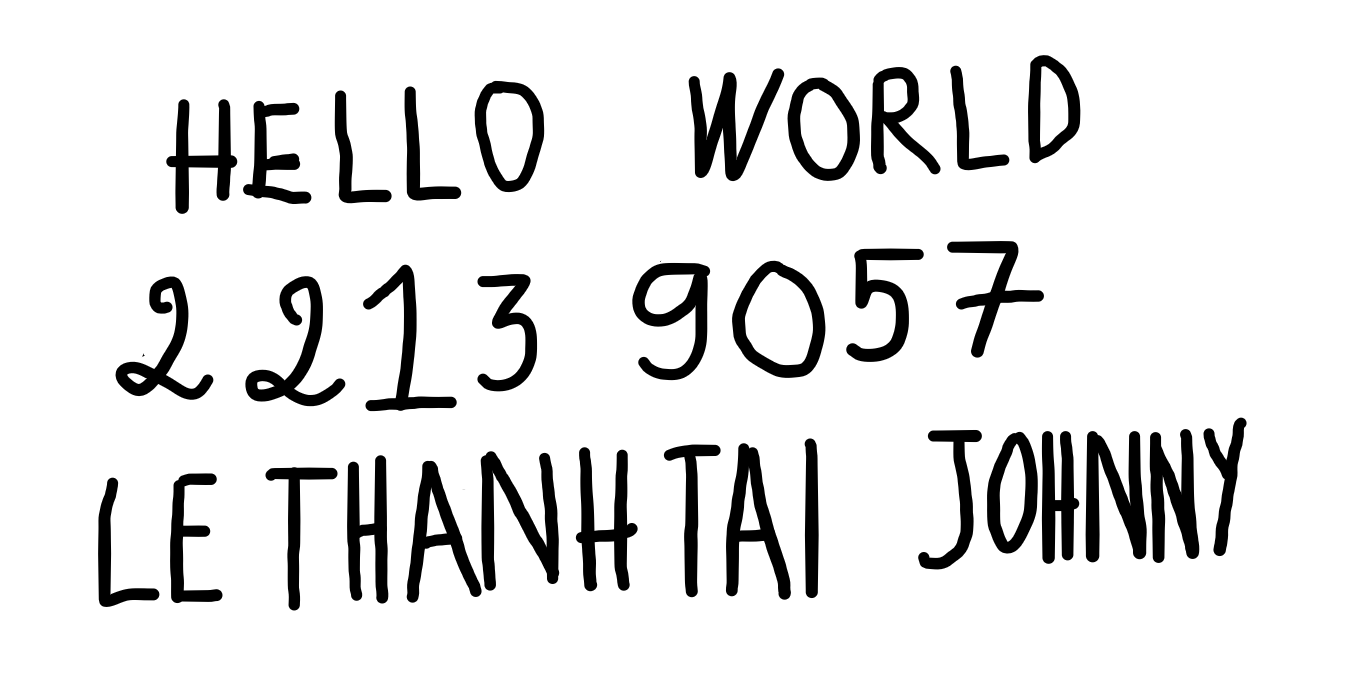 HELLO WORLD
2213 9057
LE THANH TAI JOHNNY